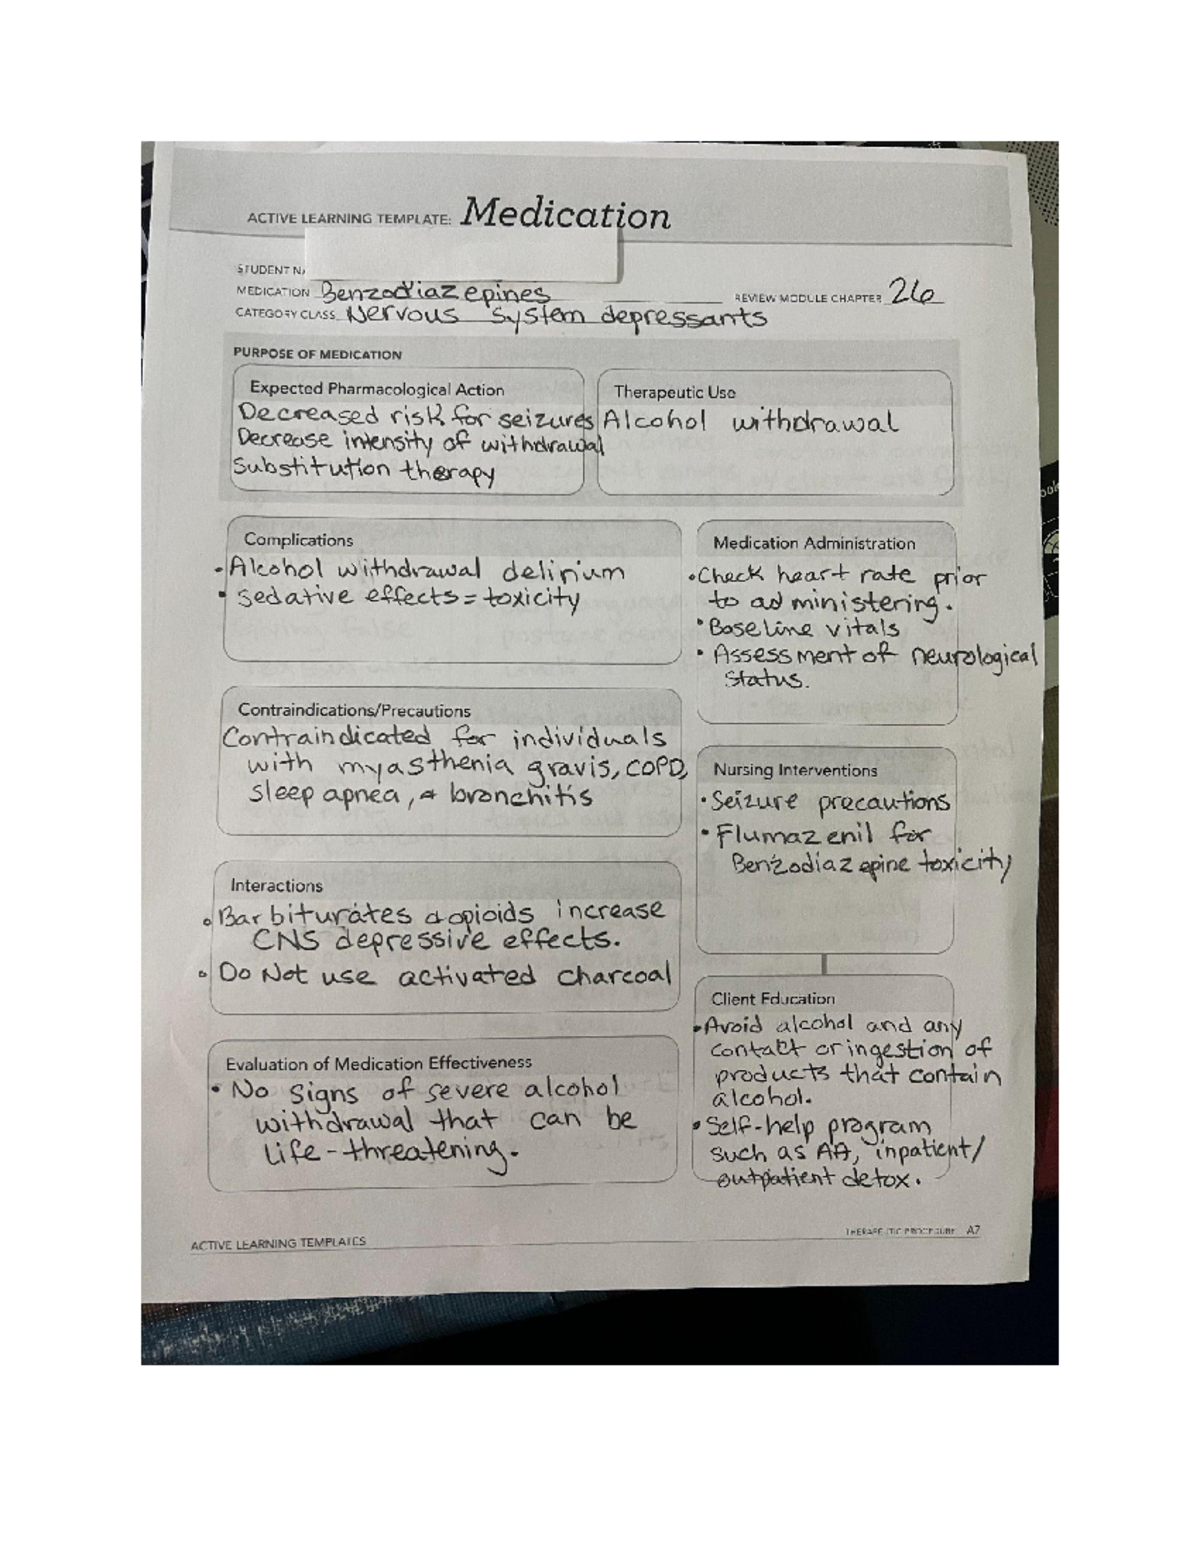 ACTIVE LEARNING TEMPLATE: Medication
STUDENT N
MEDICATION Benzodiazepines REVIEW MODULE CHAPTER 26
CATEGORY CLASS Nervous system depressants
PURPOSE OF MEDICATION
Expected Pharmacological Action
Decreased risk for seizures
Decrease intensity of withdrawal
Substitution therapy
Therapeutic Use
Alcohol withdrawal
Complications
• Alcohol withdrawal delirium
• Sedative effects = toxicity
Medication Administration
• Check heart rate prior
to administering.
• Baseline vitals
• Assessment of neurological
status.
Contraindications/Precautions
Contraindicated for individuals
with myasthenia gravis, COPD,
sleep apnea, & bronchitis
Nursing Interventions
• Seizure precautions
• Flumazenil for
Benzodiazepine toxicity
Interactions
• Barbiturates & opioids increase
CNS depressive effects.
• Do Not use activated charcoal
Client Education
• Avoid alcohol and any
contact or ingestion of
products that contain
alcohol.
• Self-help program
such as AA, inpatient/
outpatient detox.
Evaluation of Medication Effectiveness
• No signs of severe alcohol
withdrawal that can be
life-threatening.
ACTIVE LEARNING TEMPLATES
THERAPEUTIC PROCEDURE A7